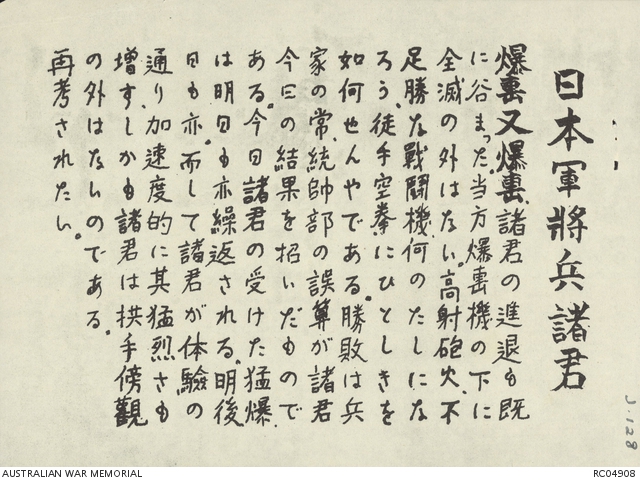 日本軍將兵諸君
爆撃又爆撃、諸君の進退も既
に谷まった。当方爆撃機の下に
全滅の外はない。高射砲火、不
足勝な戰闘機何のたしにな
ろう、徒手空拳にひとしきを
如何せんやである。勝敗は兵
家の常、統帥部の誤算が諸君
今日の結果を招いだもので
ある。今日諸君の受けた猛爆
は明日も亦繰返される。明後
日も亦、而して諸君が体驗の
通り加速度的に其猛烈さも
増す。しかも諸君は拱手傍觀
の外はないのである。
再考されたい。
J-128
AUSTRALIAN WAR MEMORIAL
RC04908